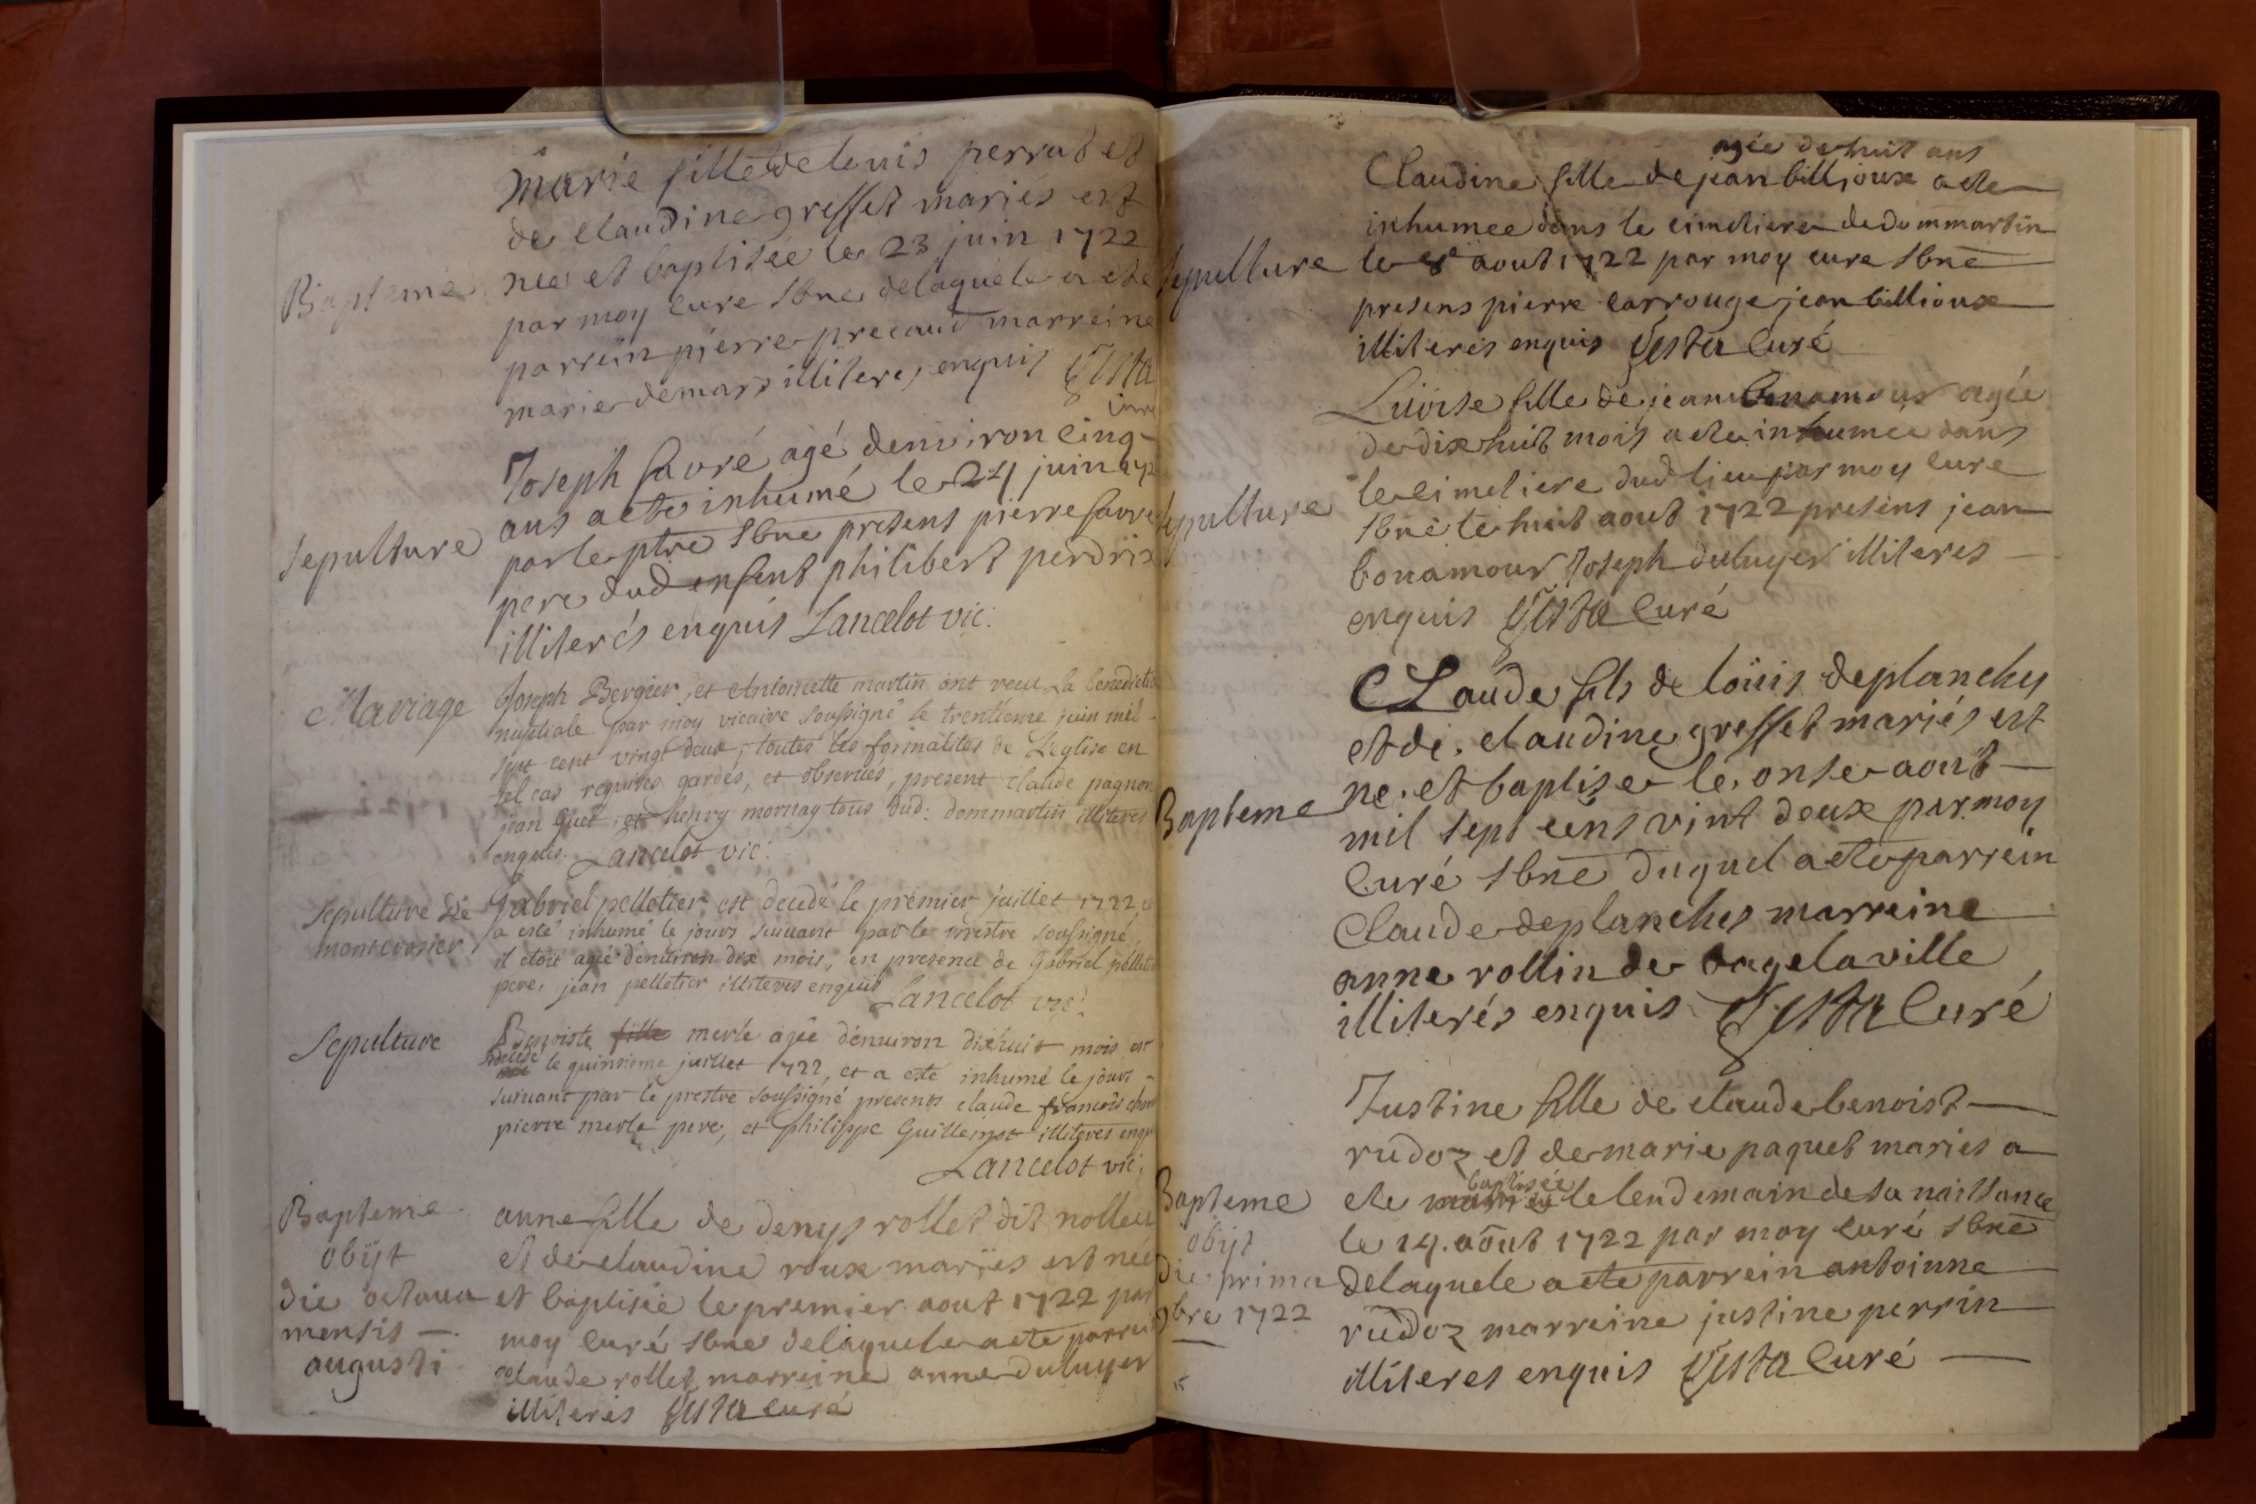 Bapteme
Marie fille de louis perrat et
de claudine gresset mariés est
née et baptisée le 23 juin 1722
par moy curé sbne delaquele a eté
parrein pierre precaud marreine
marie demars illiteres enquis Vesta
curé
Sepulture
Joseph favré agé denviron cinq
ans a ete inhumé le 24 juin
par le ptre sbne presens pierre favre
pere dud enfent philibert perdrix
illiterés enquis Lancelot vic:
Mariage
Joseph Bergier, et Antoinette martin ont receu la benedictio
nuptiale par moy vicaire soussigné le trentieme juin mil
sept cent vingt deux, toutes les formalites de L'eglise en
tel cas requises gardés, et observés, present claude pagnon
jean et henry mornay tous dud: dommartin illiteres
enquis. Lancelot vic:
Sepulture de
montcrosier
Gabriel pelletier est decedé le premier juillet 1722
a esté inhumé le jours suivant par le prestre soussigné,
il etoit agé denviron dix mois, en presence de Gabriel pelletie
pere, jean pelletier illiteres enquis
Lancelot vic:
Sepulture
Benoiste fille merle agée d'environ dixhuit mois est
decedé le quinsieme juillet 1722, et a esté inhumé le jours
suivant par le prestre soussigné presents claude francois
pierre merle pere, et philippe Guillemot illiteres enqu
Lancelot vic:
Bapteme
obijt
die octava
mensis
augusti
anne fille de denys rollet dit nolleu
et de claudine roux mariés est née
et baptisée le premier aout 1722 par
moy curé sbne delaquele a eté parrei
claude rollet marreine anne duluyer
illiterés Vesta curé
agée de huit ans
Sepulture
Claudine fille de jean billioux a ete
inhumee dans le cimetiere de dommartin
le 8e aout 1722 par moy cure sbne
presens pierre carrouge jean billioux
illiterés enquis Vesta Curé
Sepulture
Luoise fille de jean bonamour agée
de dix huit mois a ete inhumée dans
le cimetiere dud lieu par moy cure
sbne le huit aout 1722 presens jean
bonamour Joseph duluyer illiteres
enquis Vesta Curé
Bapteme
CLaude fils de loüis deplanches
et de claudine gresset mariés est
ne et baptise le onse aout
mil sept cens vint deux par moy
Curé sbne duquel a ete parrein
Claude deplanches marreine
anne rollin de bagelaville
illiterés enquis Vesta Curé
Bapteme
obijt
die prima
9bre 1722
Justine fille de claude benoist
rudoz et de marie paquet maries a
baptisée
ete le lendemain de sa naissance
le 14. aout 1722 par moy curé sbne
delaquele a ete parrein antoinne
rudoz marreine justine perrin
illiteres enquis Vesta Curé